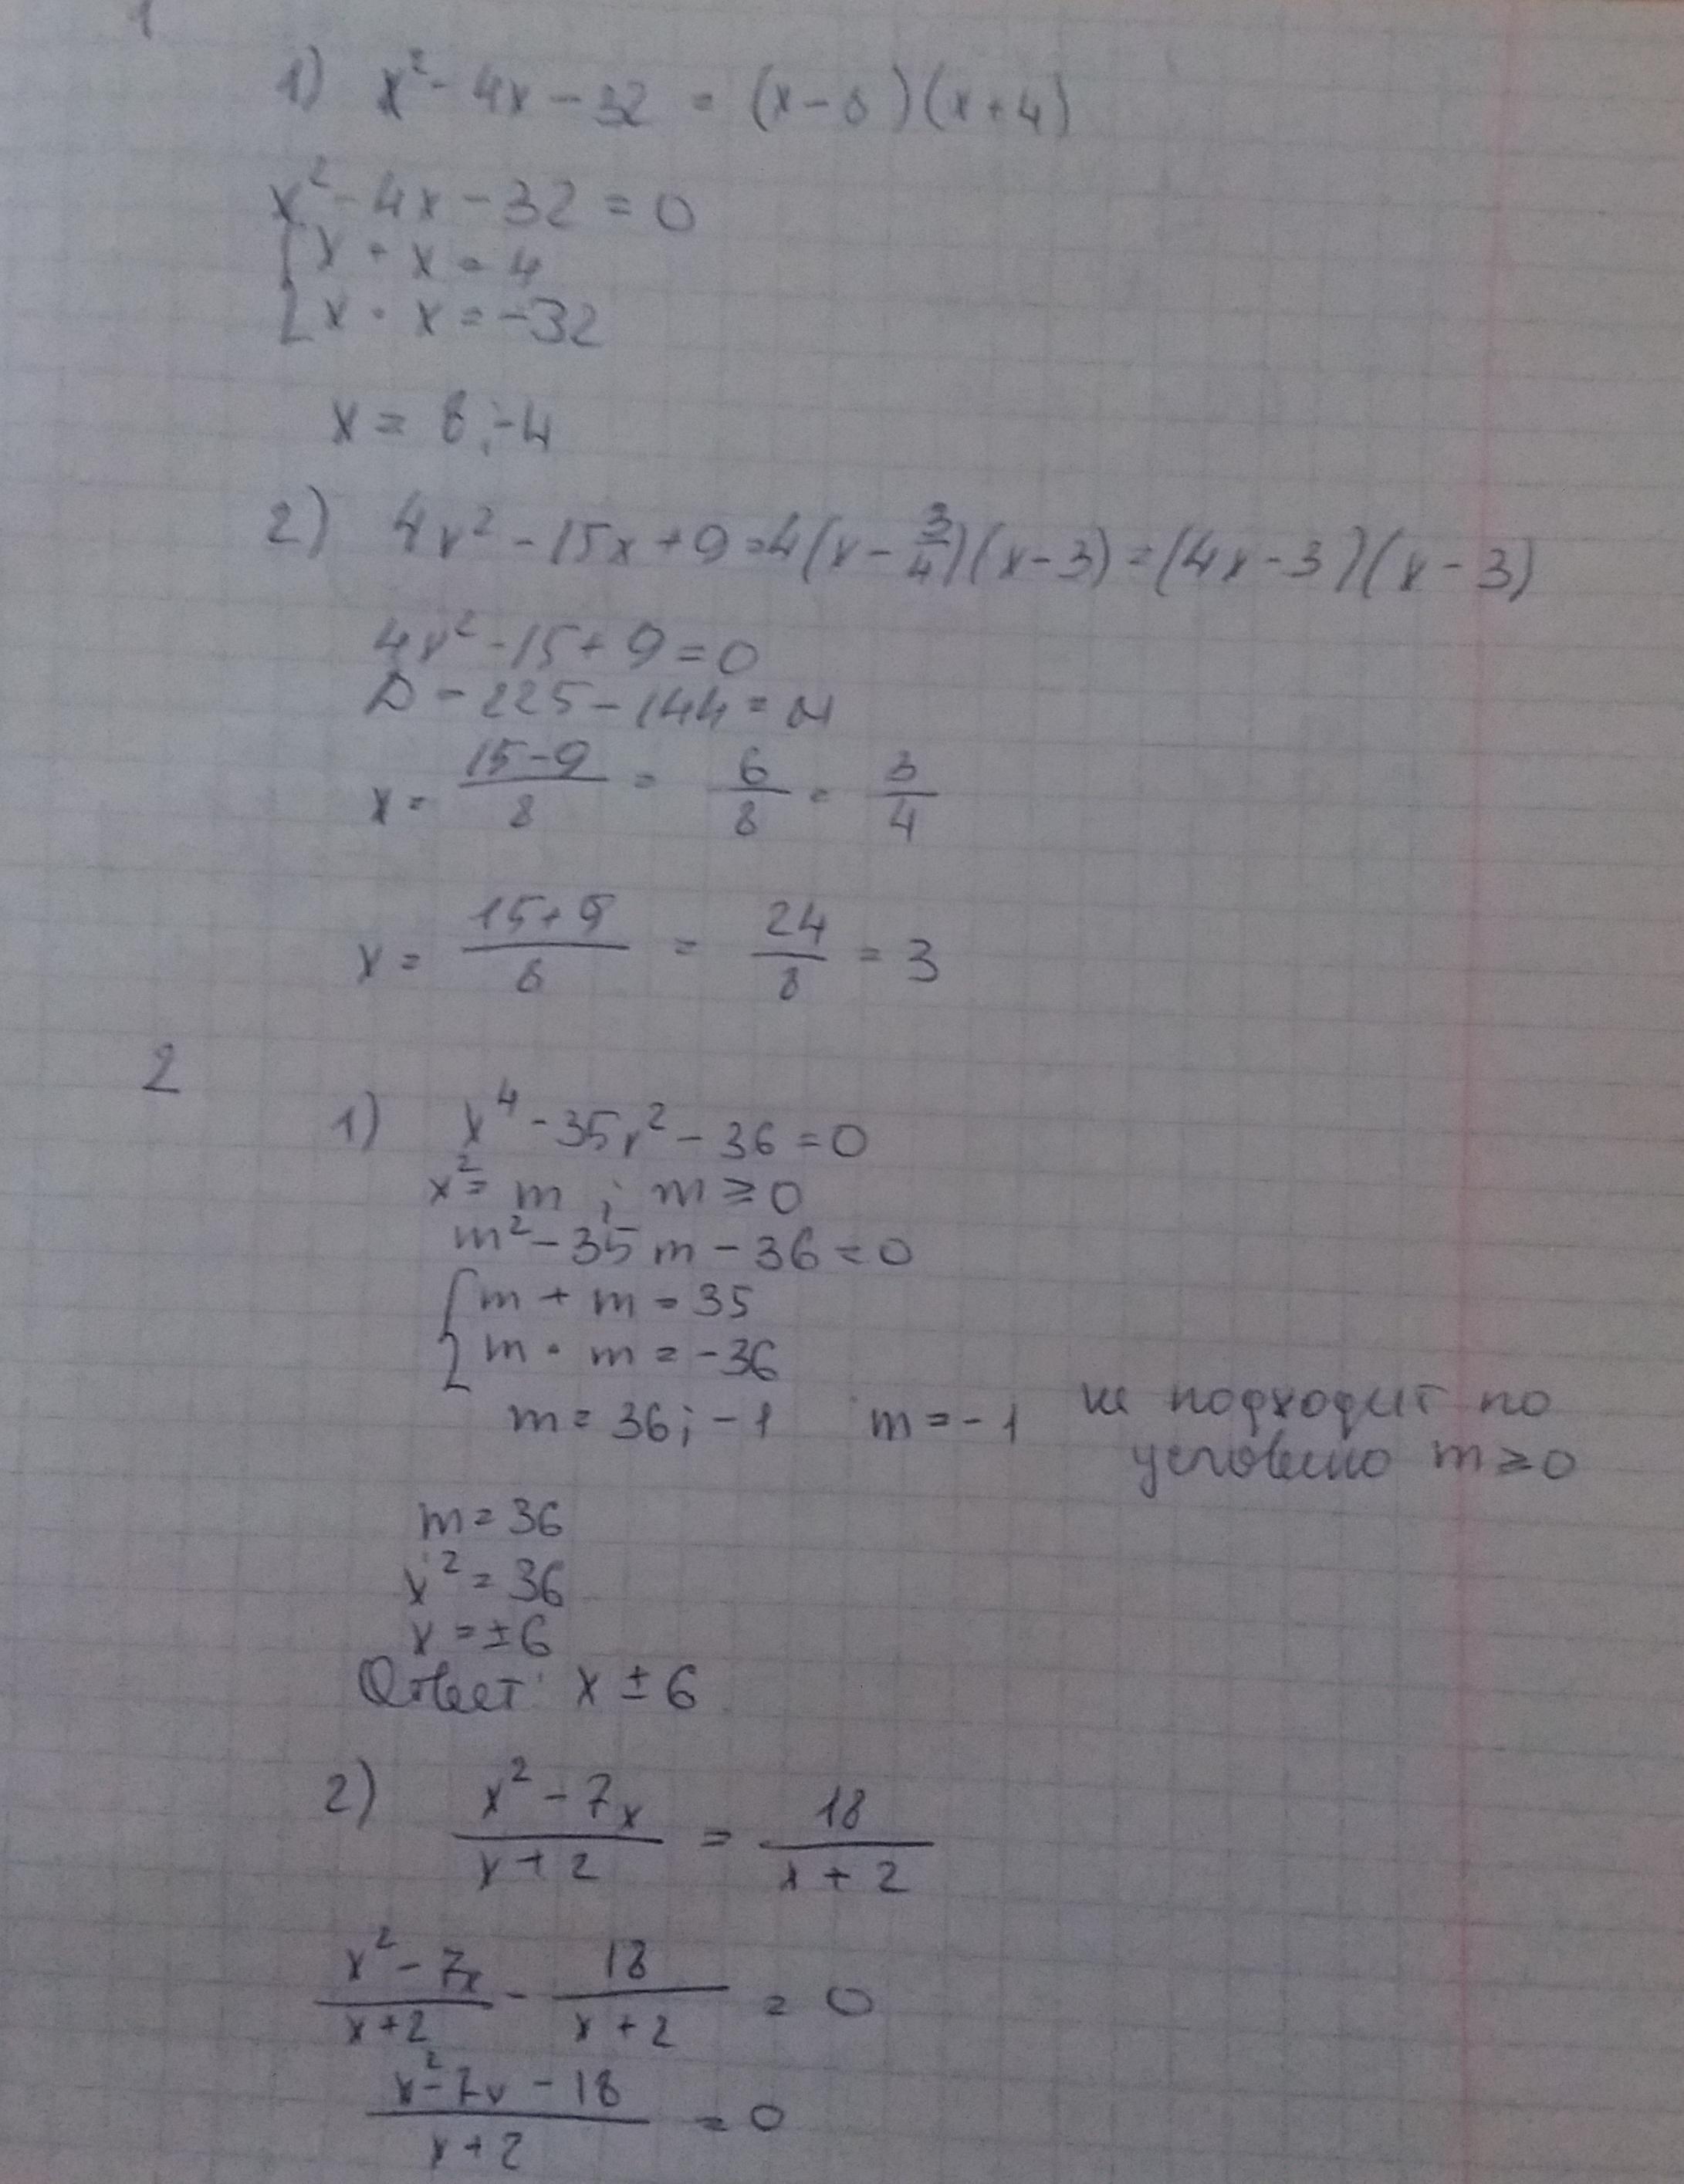 1
1) x² - 4x - 32 = (x - 8)(x + 4)
x² - 4x - 32 = 0
{ x + x = 4
x · x = -32
x = 8; -4
2) 4x² - 15x + 9 = 4(x - 3/4)(x - 3) = (4x - 3)(x - 3)
4x² - 15 + 9 = 0
D = 225 - 144 = 81
x = (15-9)/8 = 6/8 = 3/4
x = (15+9)/8 = 24/8 = 3
2
1) x⁴ - 35x² - 36 = 0
x² = m ; m ≥ 0
m² - 35m - 36 = 0
{ m + m = 35
m · m = -36
m = 36; -1 m = -1 не подходит по
условию m ≥ 0
m = 36
x² = 36
x = ±6
Ответ: x ± 6
2) (x² - 7x)/(x + 2) = 18/(x + 2)
(x² - 7x)/(x+2) - 18/(x + 2) = 0
(x² - 7x - 18)/(x + 2) = 0